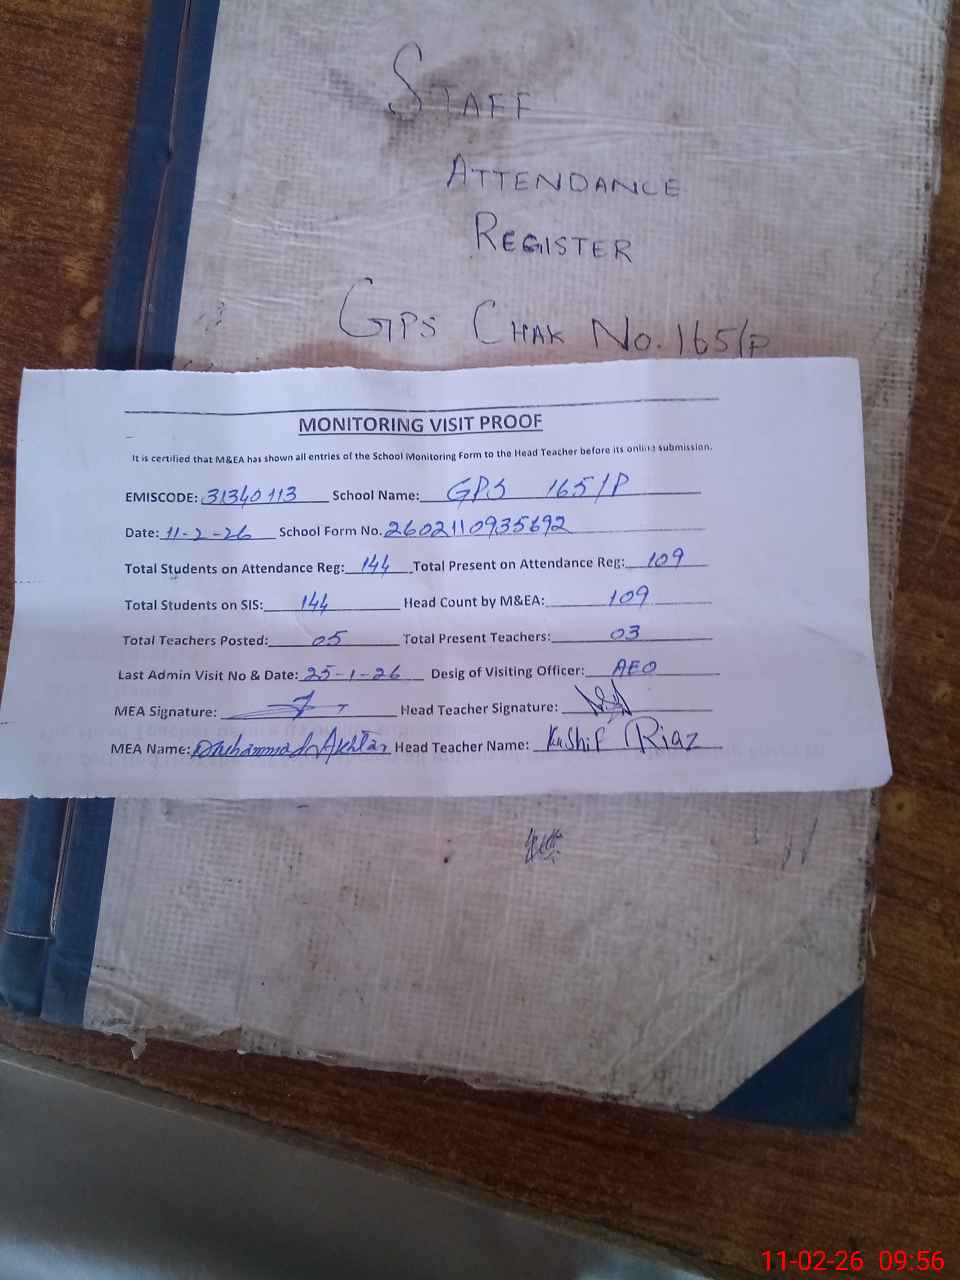 STAFF
ATTENDANCE
REGISTER
GPS CHAK No. 165/P
MONITORING VISIT PROOF
It is certified that M&EA has shown all entries of the School Monitoring Form to the Head Teacher before its online submission.
EMISCODE: 31340113 School Name: GPS 165/P
Date: 11-2-26 School Form No. 2602110935692
Total Students on Attendance Reg: 144 Total Present on Attendance Reg: 109
Total Students on SIS: 144 Head Count by M&EA: 109
Total Teachers Posted: 05 Total Present Teachers: 03
Last Admin Visit No & Date: 25-1-26 Desig of Visiting Officer: AEO
MEA Signature: Head Teacher Signature:
MEA Name: Muhammad Akhtar Head Teacher Name: Kashif Riaz
11-02-26 09:56